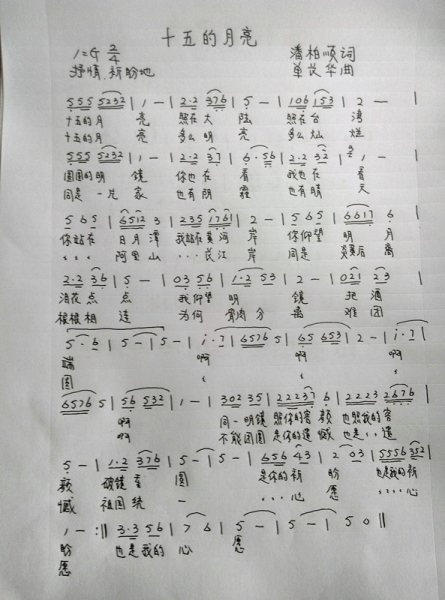 十五的月亮
1=G 2/4 潘柏顺词
抒情、祈盼地 单芝华曲
5 5 5 5 2 3 2 | 1 — | 2·2 3 7 6 | 5 — | 1 0 6 1 5 3 | 2 — |
十五的月 亮 照在大 陆 照在台 湾
十五的月 亮 多么明 亮 多么灿 烂
5 5 5 5 2 3 2 | 1 — | 2·2 3 7 | 6·5 6 | 2·2 3 2 | 1 — |
圆圆的明 镜 你也在 看 我也在 看
同是一片 家 也有阴 霾 也有晴 天
5 6 5 | 6 5 1 2 3 | 2 3 5 1 7 6 1 | 2 — | 5 6 5 | 6 6 1 7 6 |
你站在 日月潭 我站在黄河 岸 你仰望 明月
、、、 阿里山 、、、长江 岸 同是 炎黄后裔
2·2 3 6 | 5 — | 0 3 5 6 | 1·2 5 3 | 2 — | 0 2 1 2 3 |
泪花点 点 我仰望 明 镜 把酒
根根相 连 为何 骨肉分 离 难团
5·6 | 5 — | 5 — | i·7 | 6 5 7 6 | 5 | 6 5 6 5 3 | 2 — | i·7 |
端 啊 啊 啊
圆
6 5 7 6 5 | 5 6 5 3 2 | 1 — | 3 0 2 3 5 | 2 2 2 3 7 6 | 2 2 2 3 2 6 7 6 |
啊 同一明镜 照你的容 颜 也照我的容
啊 不能团圆 是你的遗 憾 也是、、遗
5 — | 1·2 3 7 6 | 5 — | 5 — | 6 5 6 4 3 | 2 0 3 | 5 5 5 6 3 5 2 |
颜 破镜重 圆 是你的祈 盼 也是我的祈
憾 祖国统 一 、、、心 愿 、、、、心
1 — :|| 3·3 5 6 | 7 6 | 5 — | 5 — | 5 0 ||
盼 也是我的 心 愿
愿